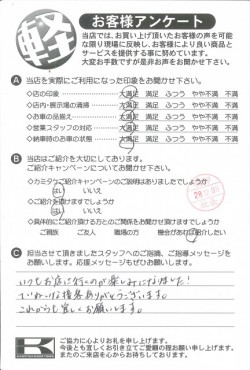 軽
お客様アンケート
当店では、お買い上げ頂いたお客様の声を可能
な限り現場に反映し、お客様により良い商品と
サービスを提供する事に努めています。
大変お手数ですが是非お声をお聞かせ下さい。
A 当店を実際にご利用になった印象をお聞かせ下さい。
◇店の印象 大満足 満足 ふつう やや不満 不満
◇店内・展示場の清掃 大満足 満足 ふつう やや不満 不満
◇お車の品揃え 大満足 満足 ふつう やや不満 不満
◇営業スタッフの対応 大満足 満足 ふつう やや不満 不満
◇納車時のお車の状態 大満足 満足 ふつう やや不満 不満
B 当店はご紹介を大切にしております。
ご紹介キャンペーンについてお聞かせ下さい。
◇カミタケご紹介キャンペーンのご説明はありましたでしょうか
はい いいえ
◇ご紹介頂けますでしょうか
はい いいえ
◇具体的にご紹介頂ける方とのご関係をお聞かせ頂けますでしょうか
ご親族 ご友人 職場の方 機会があれば紹介したい
C 担当させて頂きましたスタッフへのご指摘、ご指導メッセージを
お願いします。応援メッセージもぜひお願いします。
いつもお店に行くのが楽しみになりました!
ていねいな接客ありがとうございます。
これからも宜しくお願いします。
ご協力に心よりお礼を申し上げます。
今後とも宜しくお引き立てご愛顧の程お願い申し上げます。
またのご来店を心からお待ちしております。